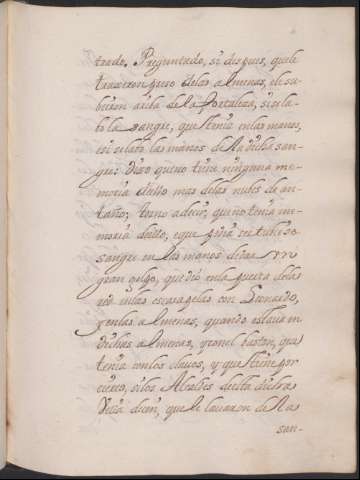 trado. Preguntado, si despues, quele
traxeron preso delas almenas, ele su-
bieron arriba de la fortaleza, si se la-
bo la sangre, que tenia en las manos,
ó si se labó las manos de la dicha san-
gre: Dixo que no tiene ninguna me-
moria dello mas delas nubes de an-
taño; torno adecir, que no tenia me-
moria dello, e que quizá contubiese
sangre en las manos de un
gran golpe, que dió en la puerta de la
red, en las escarapelas con Bernardo,
y en las almenas, quando estava en
dichas almenas, y con el baston, que
tenia con los clavos, y que tiene por
cierto, si los Alcaldes desta dicha
Villa dicen, que le lavaron de la
san-